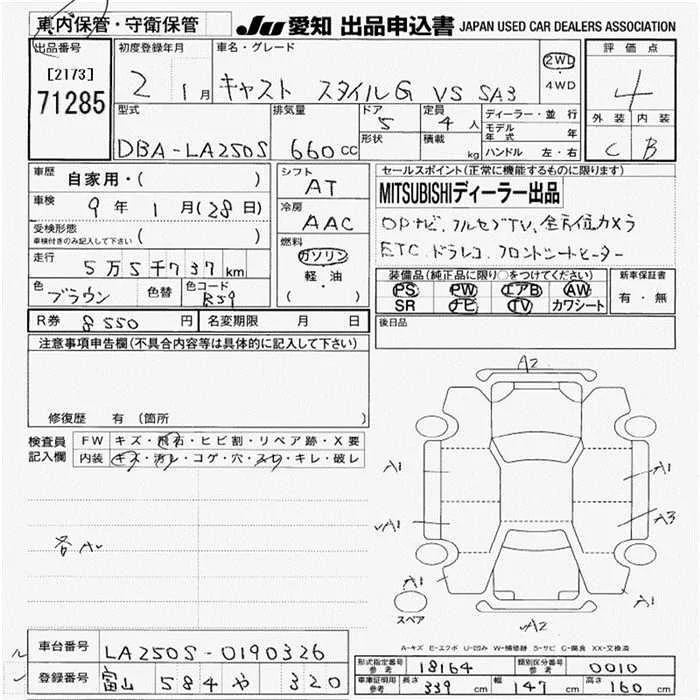 車内保管・守衛保管
JU 愛知 出品申込書 JAPAN USED CAR DEALERS ASSOCIATION
出品番号
[2173]
71285
初度登録年月
2 1月
車名・グレード
キャスト スタイルG VS SA3
2WD
・
4WD
評価点
4
外装 内装
C B
型式
DBA-LA250S
排気量
660cc
ドア
5
形状
定員
4人
積載
kg
ディーラー・並行
モデル年式 年
ハンドル 左・右
車歴
自家用・( )
車検
9年 1月(28日)
受検形態
車検付きのみ記入して下さい ( )
走行
5万5千737km
色
ブラウン
色替
色コード
R59
シフト
AT
冷房
AAC
燃料
ガソリン
・
軽・油
( )
セールスポイント(正常に機能するものに限ります)
MITSUBISHIディーラー出品
OPナビ、フルセグTV、全方位カメラ
ETC、ドラレコ、フロントシートヒーター
装備品(純正品に限り○をつけてください)
PS PW エアB AW
SR ナビ TV カワシート
新車保証書
有・無
R券 8550円
名変期限 月 日
後日品
注意事項申告欄(不具合内容等は具体的に記入して下さい)
修復歴 有(箇所 )
検査員
記入欄
FW キズ・飛石・ヒビ割・リペア跡・X要
内装 キズ・汚レ・コゲ・穴・スレ・キレ・破レ
各A
A2
A1
A1
A1
A3
A1
A1
A2
スペア
A-キズ E-エクボ U-凹み W-補修跡 S-サビ C-腐食 XX-交換済
車台番号 LA250S-0190326
登録番号 富山 584 や 320
形式指定番号
参考
18164
類別区分番号
参考
0010
車庫証明用
参考
長さ 339cm 幅 147cm 高さ 160cm